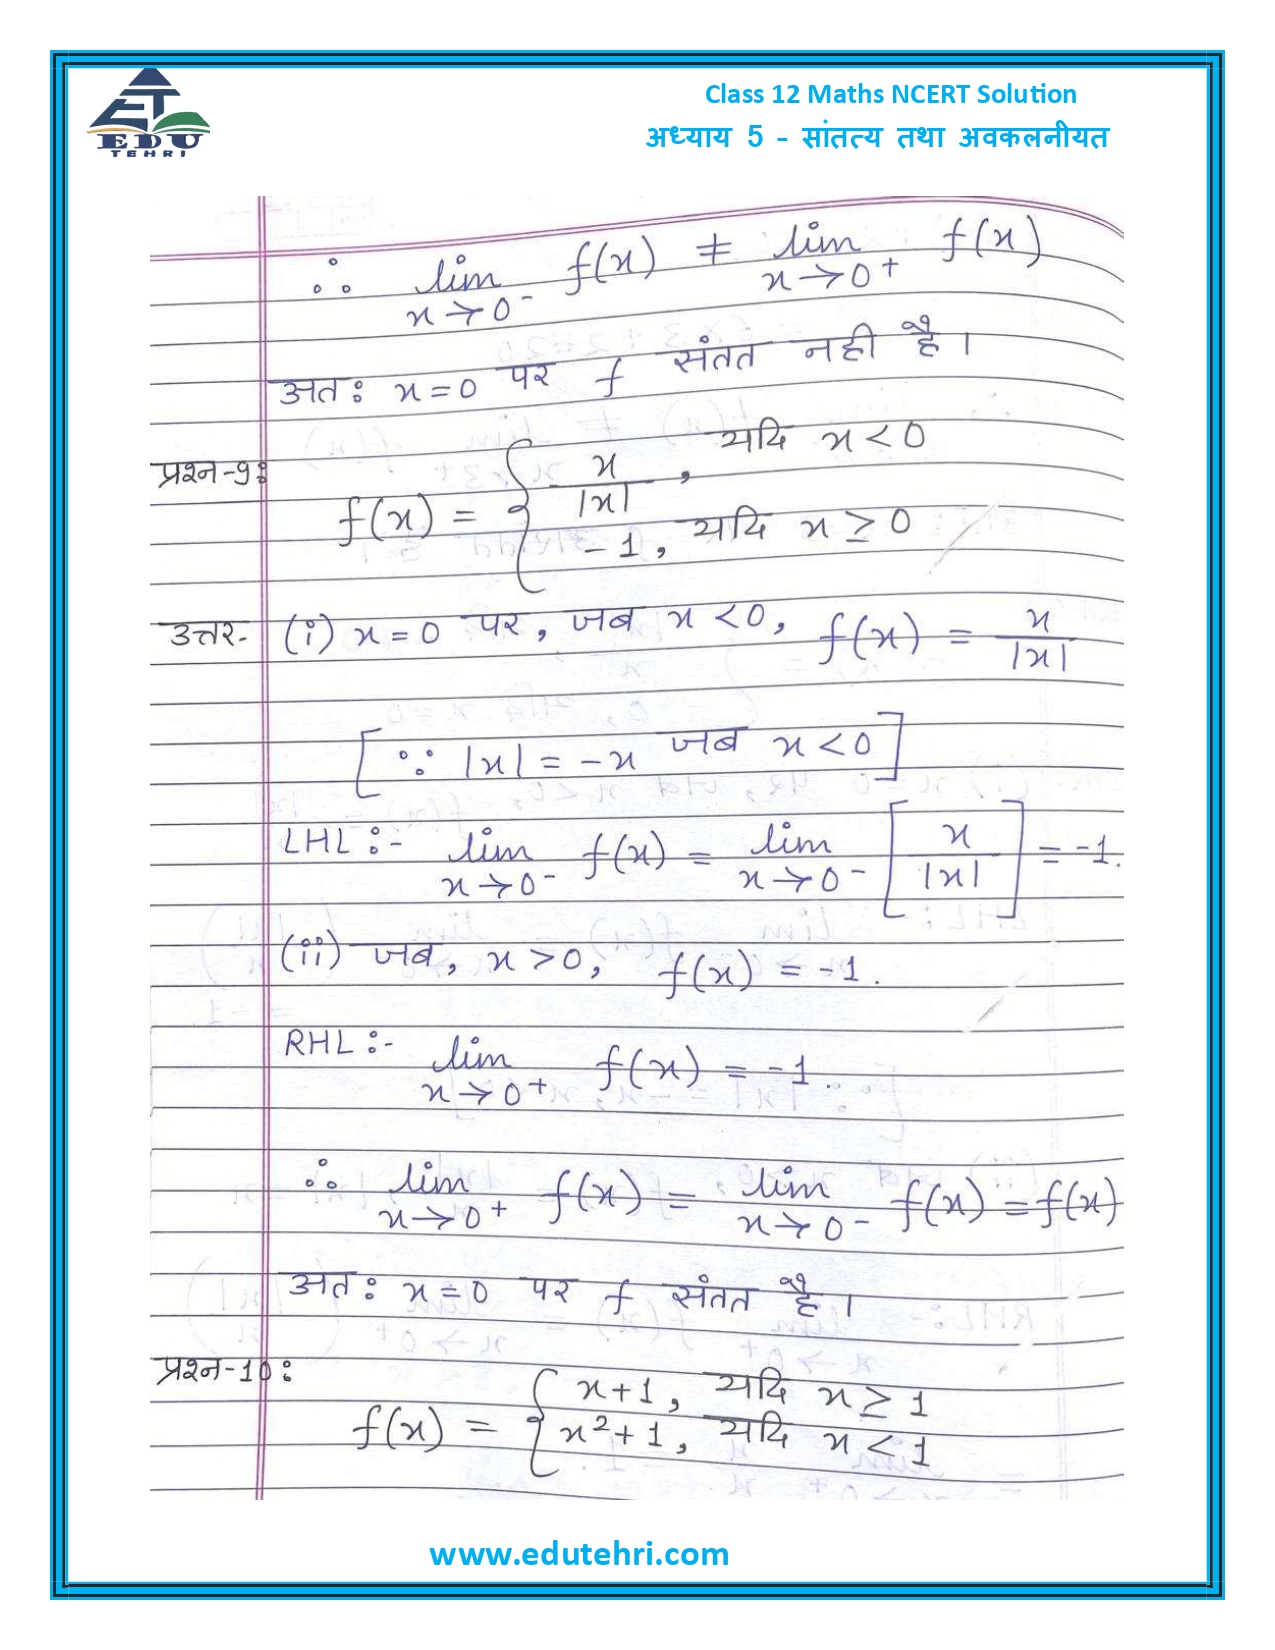 EDU
TEHRI
Class 12 Maths NCERT Solution
अध्याय 5 - सांतत्य तथा अवकलनीयत
∴ lim f(x) ≠ lim f(x)
x→0⁻ x→0⁺
अतः x=0 पर f संतत नही है।
प्रश्न-9:
f(x) = { x/|x| , यदि x<0
-1, यदि x≥0
उत्तर- (i) x=0 पर, जब x<0, f(x) = x/|x|
[∵ |x| = -x जब x<0]
LHL:- lim f(x) = lim [x/|x|] = -1.
x→0⁻ x→0⁻
(ii) जब, x>0, f(x) = -1.
RHL:- lim f(x) = -1.
x→0⁺
∴ lim f(x) = lim f(x) = f(x)
x→0⁺ x→0⁻
अतः x=0 पर f संतत है।
प्रश्न-10:
f(x) = { x+1, यदि x≥1
x²+1, यदि x<1
www.edutehri.com